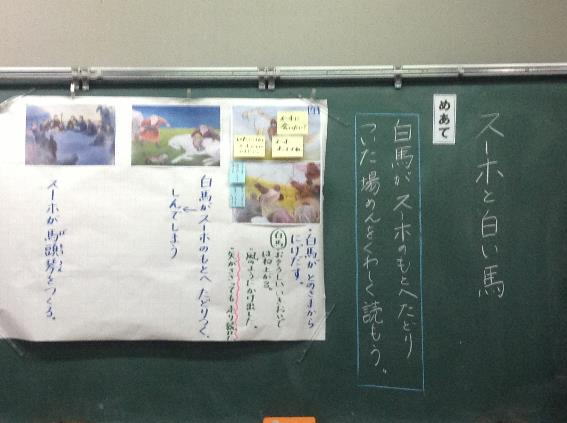 スーホと白い馬
めあて
白馬がスーホのもとへたどり
ついた場めんをくわしく読もう。
・白馬がとのさまから
にげだす。
白馬
おそろしいいきおいで
はね上がる。
風のようにかけ出した。
白馬がスーホのもとへたどりつく。
しんでしまう
スーホが馬頭琴をつくる。